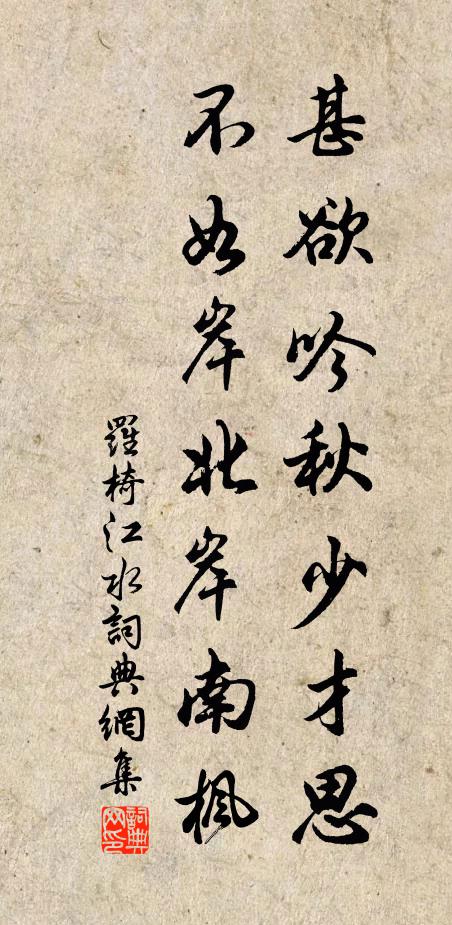 甚欲吟秋少才思
不如岸北岸南楓
羅椅江水詞典網集
詞典网印